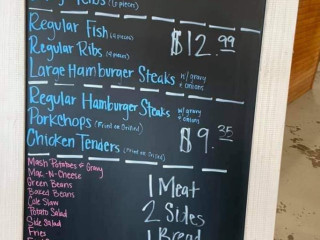 (12 pieces)
Regular Fish (4 piece)
$12.99
Regular Ribs (6 pieces)
Large Hamburger Steaks w/ gravy + onions
Regular Hamburger Steaks w/ gravy + onions
Porkchops (Fried or Grilled)
$9.35
Chicken Tenders (Fried or Grilled)
Mash Potatoes & Gravy
Mac-N-Cheese
Green Beans
Baked Beans
Cole Slaw
Potato Salad
Side Salad
Fries
1 Meat
2 Sides
1 Bread